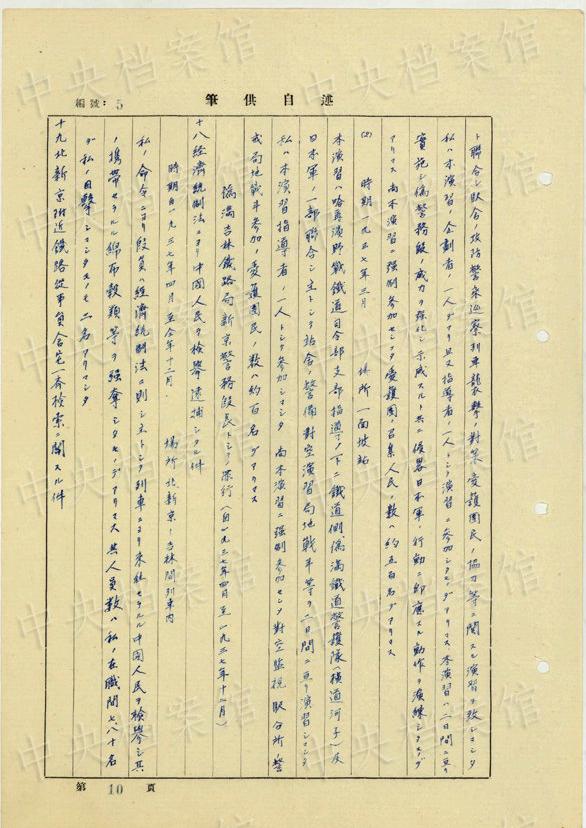 編號: 5
筆供自述
ト聯合シ駅舎ノ攻防警乗巡察列車襲撃対策愛護団民ノ協力等ニ関スル演習ヲ致シマシタ
私ハ本演習ノ企劃者ノ一人デアリ且又指導者ノ一人トシテ演習ニ参加シタモノデアリマス 本演習ハ二日間ニ亘リ
実施シ偽警務段ノ威力ヲ強化シ示威スルト共ニ侵略日本軍ノ行動ニ即應スル動作ヲ演練シタモノデ
アリマス 尚本演習ニ強制参加セシメタ愛護団ノ召集人民ノ数ハ約五百名デアリマス
(2) 時期一九三七年三月 場所一面坡站
本演習ハ哈爾濱野戦鉄道司令部支部指導ノ下ニ鉄道側偽満鉄道警護隊(横道河子)及
日本軍ノ一部聯合シ主トシテ站舎ノ警備対空演習局地戦斗等ヲ二日間ニ亘リ演習シマシタ
私ハ本演習指導者ノ一人トシテ参加シマシタ 尚本演習ニ強制参加セシメ対空監視 駅合所ノ警
戒局地戦斗参加ノ愛護団民ノ数ハ約百名デアリマス
偽満吉林鐵路局新京警務段長トシテノ罪行(自一九三七年四月至一九三七年十二月)
十八経済統制法ニヨリ中國人民ヲ検挙逮捕シタル件
時期自一九三七年四月至仝年十二月. 場所北新京ー吉林間列車内
私ノ命令ニヨリ段員ハ経済統制法ニ則シ主トシテ列車ニヨリ来往セラルル中国人民ヲ検挙シ其
ノ携帯セラルル綿布穀類等ヲ強奪シタモノデアリマス 其人員数ハ私ノ在職間七八十名
デ私ノ目撃シマシタモノモ二名アリマシタ
十九北新京附近鐵路從事員舎宅一斉検索ニ関スル件
第 10 頁
中央档案馆